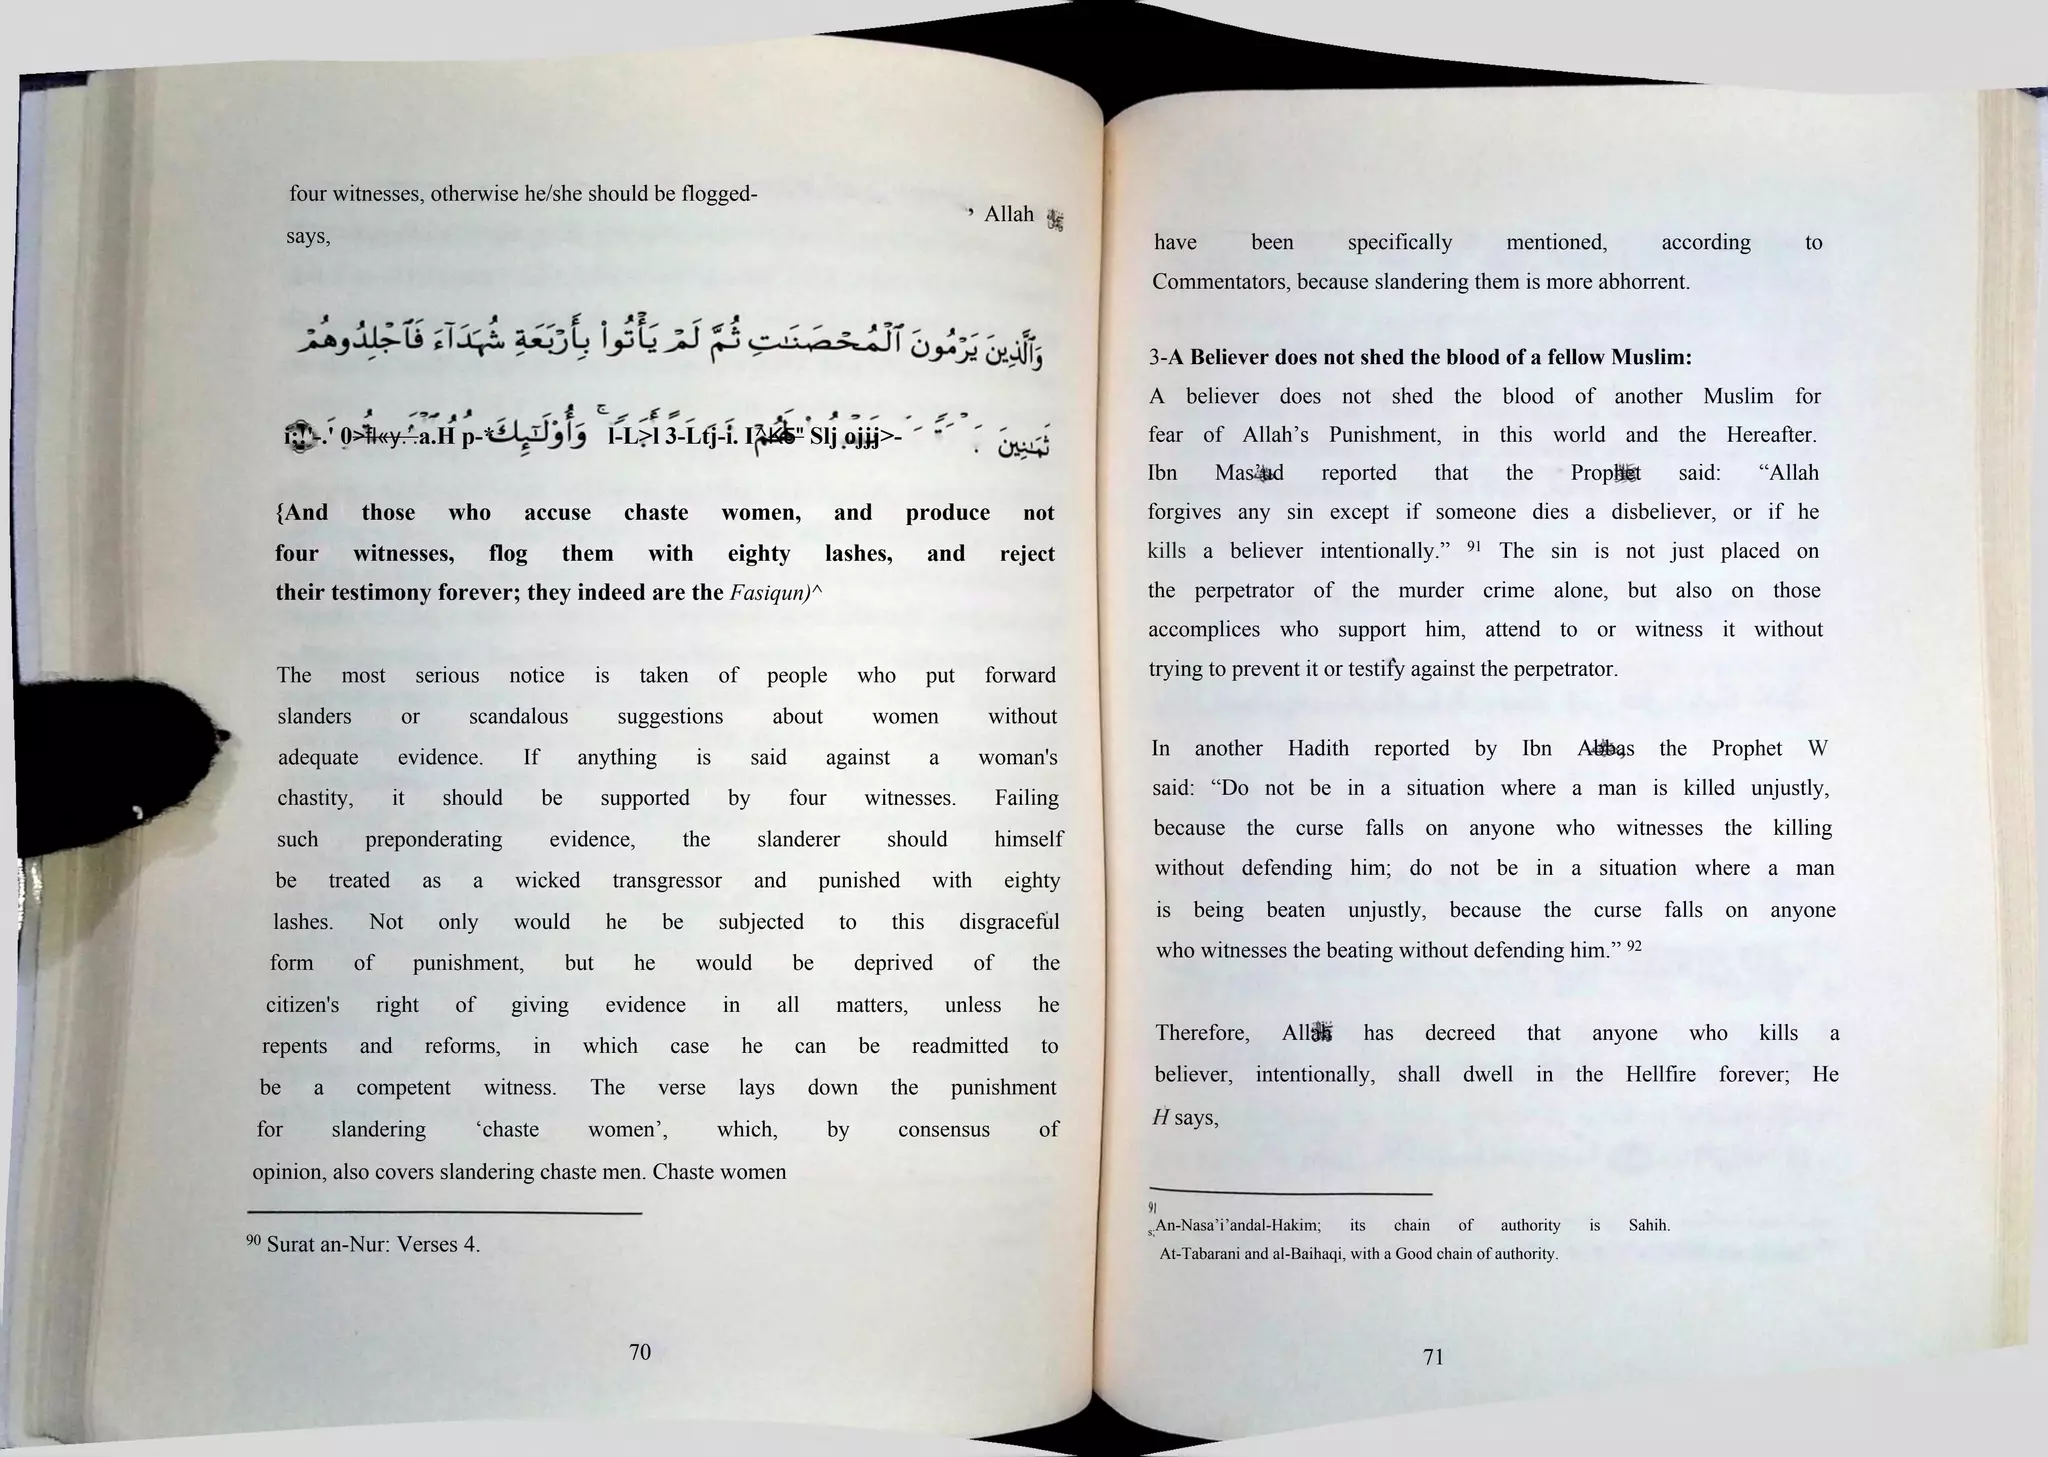 four witnesses, otherwise he/she should be flogged-
, Allah ﷻ
says,
وَٱلَّذِينَ يَرْمُونَ ٱلْمُحْصَنَـٰتِ ثُمَّ لَمْ يَأْتُوا۟ بِأَرْبَعَةِ شُهَدَآءَ فَٱجْلِدُوهُمْ
ثَمَـٰنِينَ وَأُو۟لَـٰٓئِكَ
{And those who accuse chaste women, and produce not
four witnesses, flog them with eighty lashes, and reject
their testimony forever; they indeed are the Fasiqun)^
The most serious notice is taken of people who put forward
slanders or scandalous suggestions about women without
adequate evidence. If anything is said against a woman's
chastity, it should be supported by four witnesses. Failing
such preponderating evidence, the slanderer should himself
be treated as a wicked transgressor and punished with eighty
lashes. Not only would he be subjected to this disgraceful
form of punishment, but he would be deprived of the
citizen's right of giving evidence in all matters, unless he
repents and reforms, in which case he can be readmitted to
be a competent witness. The verse lays down the punishment
for slandering ‘chaste women’, which, by consensus of
opinion, also covers slandering chaste men. Chaste women
90 Surat an-Nur: Verses 4.
70
have been specifically mentioned, according to
Commentators, because slandering them is more abhorrent.
3-A Believer does not shed the blood of a fellow Muslim:
A believer does not shed the blood of another Muslim for
fear of Allah’s Punishment, in this world and the Hereafter.
Ibn Mas’ud reported that the Prophet said: “Allah
forgives any sin except if someone dies a disbeliever, or if he
kills a believer intentionally.” 91 The sin is not just placed on
the perpetrator of the murder crime alone, but also on those
accomplices who support him, attend to or witness it without
trying to prevent it or testify against the perpetrator.
In another Hadith reported by Ibn Abbas the Prophet W
said: “Do not be in a situation where a man is killed unjustly,
because the curse falls on anyone who witnesses the killing
without defending him; do not be in a situation where a man
is being beaten unjustly, because the curse falls on anyone
who witnesses the beating without defending him.” 92
Therefore, Allah has decreed that anyone who kills a
believer, intentionally, shall dwell in the Hellfire forever; He
H says,
91
s; An-Nasa’i’andal-Hakim; its chain of authority is Sahih.
At-Tabarani and al-Baihaqi, with a Good chain of authority.
71